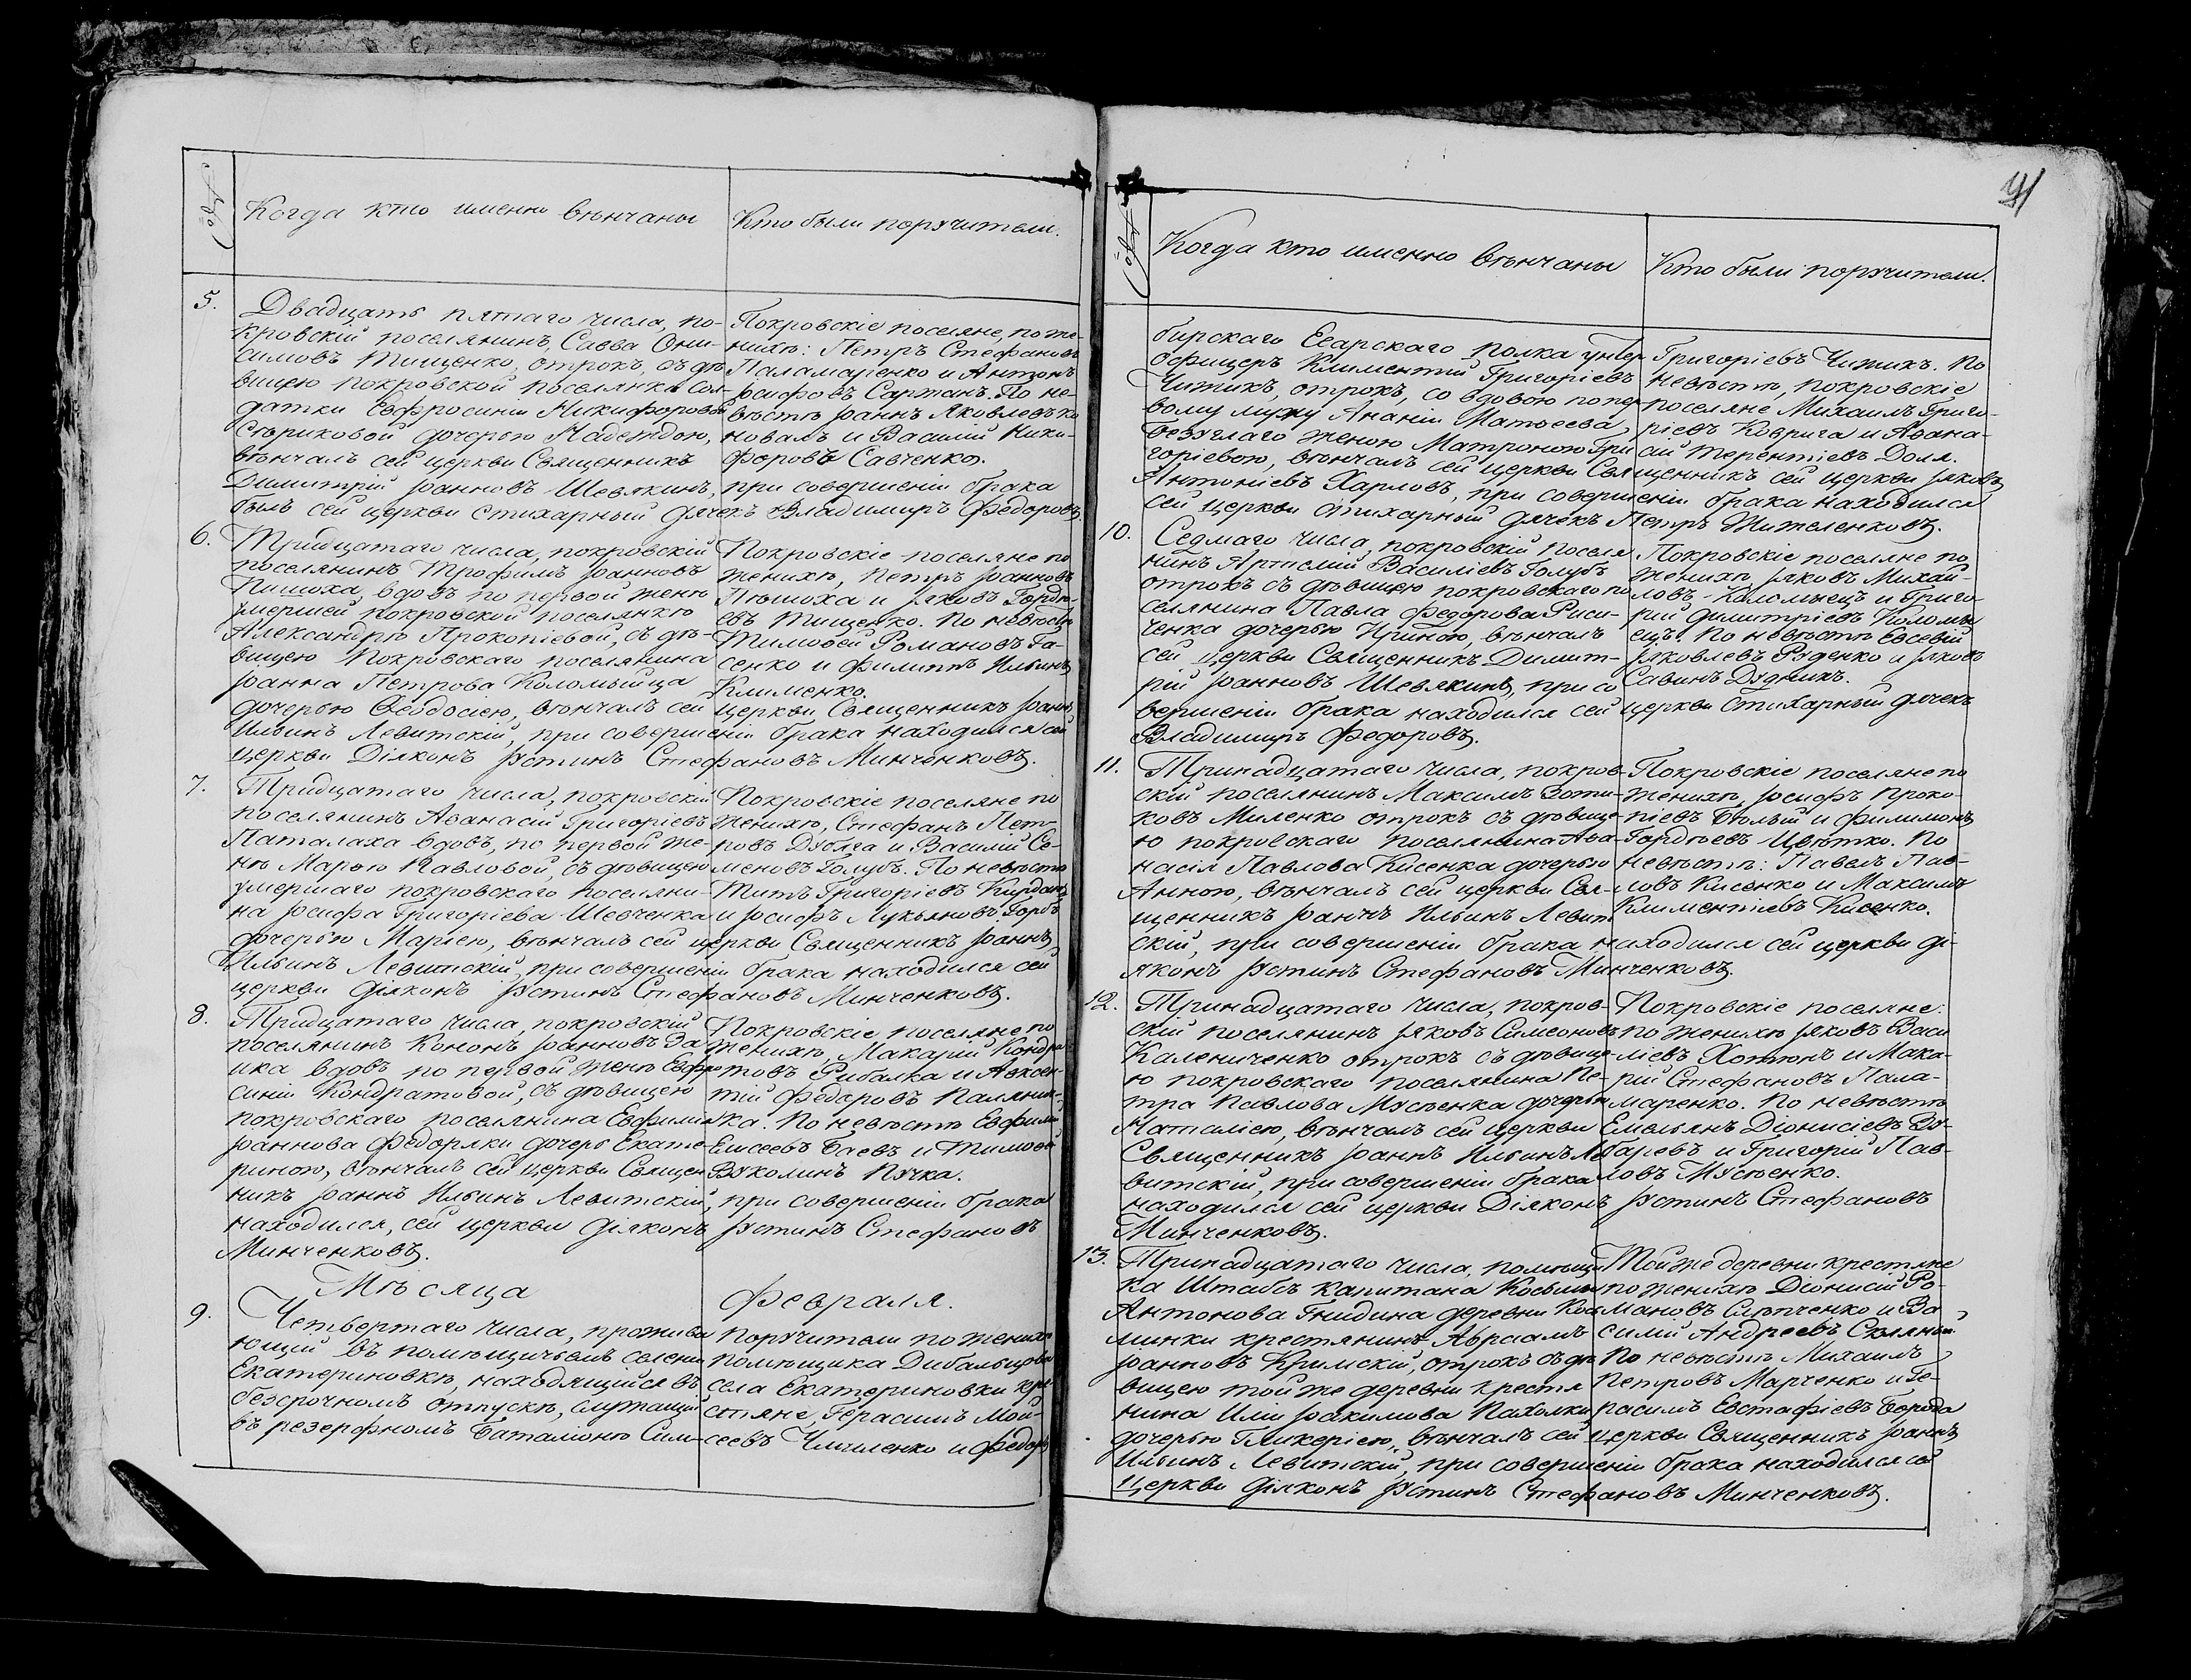 Когда кто именно вѣнчаны
Кто были поручители.
5.
Двадцать пятаго числа, по-
кровскій поселянинъ, Савва Они-
симовъ Тищенко, отрокъ, съ дѣ
вицею покровской поселянки сол-
датки Евфросиніи Никифоровой
Стариковой дочерью Надеждою,
вѣнчалъ сей церкви Священникъ
Димитрій Іоанновъ Шевякинъ, при совершеніи брака
былъ сей церкви стихарный дячекъ Владимиръ Федоровъ.
Покровскіе поселяне, по же-
нихѣ: Петръ Стефановъ
Паламаренко и Антонъ
Іосифовъ Сартанъ. По не-
вѣстѣ Іоаннъ Яковлевъ Ко
новалъ и Василій Ники-
форовъ Савченко.
6.
Тридцатаго числа, покровскій
поселянинъ Трофимъ Іоанновъ
вдовъ по первой женѣ
умершей покровской поселянкѣ
Александрѣ Прокопіевой, съ дѣ-
вицею покровскаго поселянина
Іоанна Петрова Коломыйца
дочерью Ѳеодосіею, вѣнчалъ сей церкви Священникъ Іоаннъ
Ильинъ Левитскій, при совершеніи брака находился сей
церкви Діяконъ Іустинъ Стефановъ Минченковъ.
Покровскіе поселяне по
женихѣ, Петръ Іоанновъ
и Яковъ Гордѣ-
евъ Тищенко. По невѣстѣ
Тимоѳей Романовъ Га-
сенко и Филиппъ Ильинъ
Клименко.
7.
Тридцатаго числа, покровскій
поселянинъ Аѳанасій Григоріевъ
Паталаха вдовъ, по первой же-
нѣ Марѳѣ Павловой, съ дѣвицею
умершаго покровскаго поселяни-
на Іосифа Григоріева Шевченка
дочерью Маріею, вѣнчалъ сей церкви Священникъ Іоаннъ
Ильинъ Левитскій, при совершеніи брака находился сей
церкви діяконъ Іустинъ Стефановъ Минченковъ.
Покровскіе поселяне по
женихѣ, Стефанъ Пет-
ровъ Дубяга и Василій Се-
меновъ Голубъ. По невѣстѣ
Титъ Григоріевъ
и Іосифъ Лукьяновъ Горбъ
8.
Тридцатаго числа, покровскій
поселянинъ Кононъ Іоанновъ За
ика вдовъ по первой женѣ Евфро
синіи Кондратовой, съ дѣвицею
покровскаго поселянина Евфимія
Іоаннова Федоряки дочерь Екате
риною, вѣнчалъ сей церкви Священ
никъ Іоаннъ Ильинъ Левитскій, при совершеніи брака
находился, сей церкви діяконъ Іустинъ Стефановъ
Минченковъ.
Покровскіе поселяне по
женихѣ, Макарій Кондра-
товъ Рибалка и Авксен-
тій Федоровъ Паляни-
ка. По невѣстѣ Евфимій
Елисеевъ Баевъ и Тимоѳей
Вуколинъ Пучка.
Мѣсяца Февраля.
9.
Четвертаго числа, прожива
ющій въ помѣщичьемъ селеніи
Екатериновкѣ, находящійся въ
безсрочномъ отпускѣ, служащій
въ резерфномъ Баталіонѣ Сим-
Поручители по женихѣ
помѣщика
села Екатериновки кре
стьяне, Герасимъ Мой-
сеевъ Чмиленко и Федоръ
91
Когда кто именно вѣнчаны
Кто были поручители.
бирскаго Егарскаго полка унтер
офицеръ Климентій Григоріевъ
Чижикъ, отрокъ, со вдовою по пер
вому мужу Ананіи Матѳеева
Безуглаго женою Матроною Гри
горіевою, вѣнчалъ сей церкви Священникъ сей церкви Іяковъ
Антоніевъ Харловъ, при совершеніи брака находился
сей церкви стихарный дячекъ Петръ Жителенковъ.
Григоріевъ Чижикъ. По
невѣстѣ, покровскіе
поселяне Михаилъ Григо-
ріевъ Коврига и Аѳана-
сій Терентіевъ Доля.
10.
Седмаго числа, покровскій поселя
нинъ Артемій Василіевъ Голубъ
отрокъ съ дѣвицею покровскаго по
селянина Павла Федорова Риси-
ченка дочерью Ириною, вѣнчалъ
сей церкви Священникъ Димит-
рій Іоанновъ Шевякинъ, при со
вершеніи брака находился сей церкви Стихарный дячекъ
Владимиръ Федоровъ.
Покровскіе поселяне по
женихѣ, Іяковъ Михай-
ловъ Коломыецъ и Григо-
рій Димитріевъ Коломы
ецъ. По невѣстѣ Евсевій
Іяковлевъ Руденко и Іяковъ
Савинъ Дудникъ.
11.
Тринадцатаго числа, покров-
скій поселянинъ Максимъ Зоти-
ковъ Миленко отрокъ съ дѣвице-
ю покровскаго поселянина Аѳа-
насія Павлова Кисенка дочерью
Анною, вѣнчалъ сей церкви Свя-
щенникъ Іоаннъ Ильинъ Левит
скій, при совершеніи брака находился сей церкви ді-
яконъ Іустинъ Стефановъ Минченковъ.
Покровскіе поселяне по
женихѣ, Іосифъ Проко-
піевъ Бѣлый и Филимонъ
Гордѣевъ Цвѣтко. По
невѣстѣ: Павелъ Пав-
ловъ Кисенко и Максимъ
Климентіевъ Кисенко.
12.
Тринадцатаго числа, покров-
скій поселянинъ Іяковъ Симеоновъ
Калениченко отрокъ съ дѣвице-
ю покровскаго поселянина Пе-
тра Павлова Мусѣенка дочерью
Наталіею, вѣнчалъ сей церкви
Священникъ Іоаннъ Ильинъ Ле
витскій, при совершеніи брака
находился сей церкви Діяконъ Іустинъ Стефановъ
Минченковъ.
Покровскіе поселяне:
по женихѣ Іяковъ Васи
ліевъ Хотюнъ и Мака-
рій Стефановъ Пала-
маренко. По невѣстѣ
Емельянъ Діонисіевъ Зу-
баревъ и Григорій Пав-
ловъ Мусѣенко.
13.
Тринадцатаго числа, помѣщи
ка Штабсъ капитана Косьмы
Антонова Гнидина деревни Кось
минки крестянинъ Авраамъ
Іоанновъ Кримскій, отрокъ съ дѣ
вицею той же деревни крестя
нина Иліи Іоакимова Пахолки
дочерью Гликеріею, вѣнчалъ сей церкви Священникъ Іоаннъ
Ильинъ Левитскій, при совершеніи брака находился сей
Церкви діяконъ Іустинъ Стефановъ Минченковъ.
Той же деревни крестяне
по женихѣ Діонисій Ро-
мановъ Слѣпченко и Ва
силій Андреевъ
По невѣстѣ Михаилъ
Петровъ Марченко и Ге-
расимъ Евстафіевъ Борода